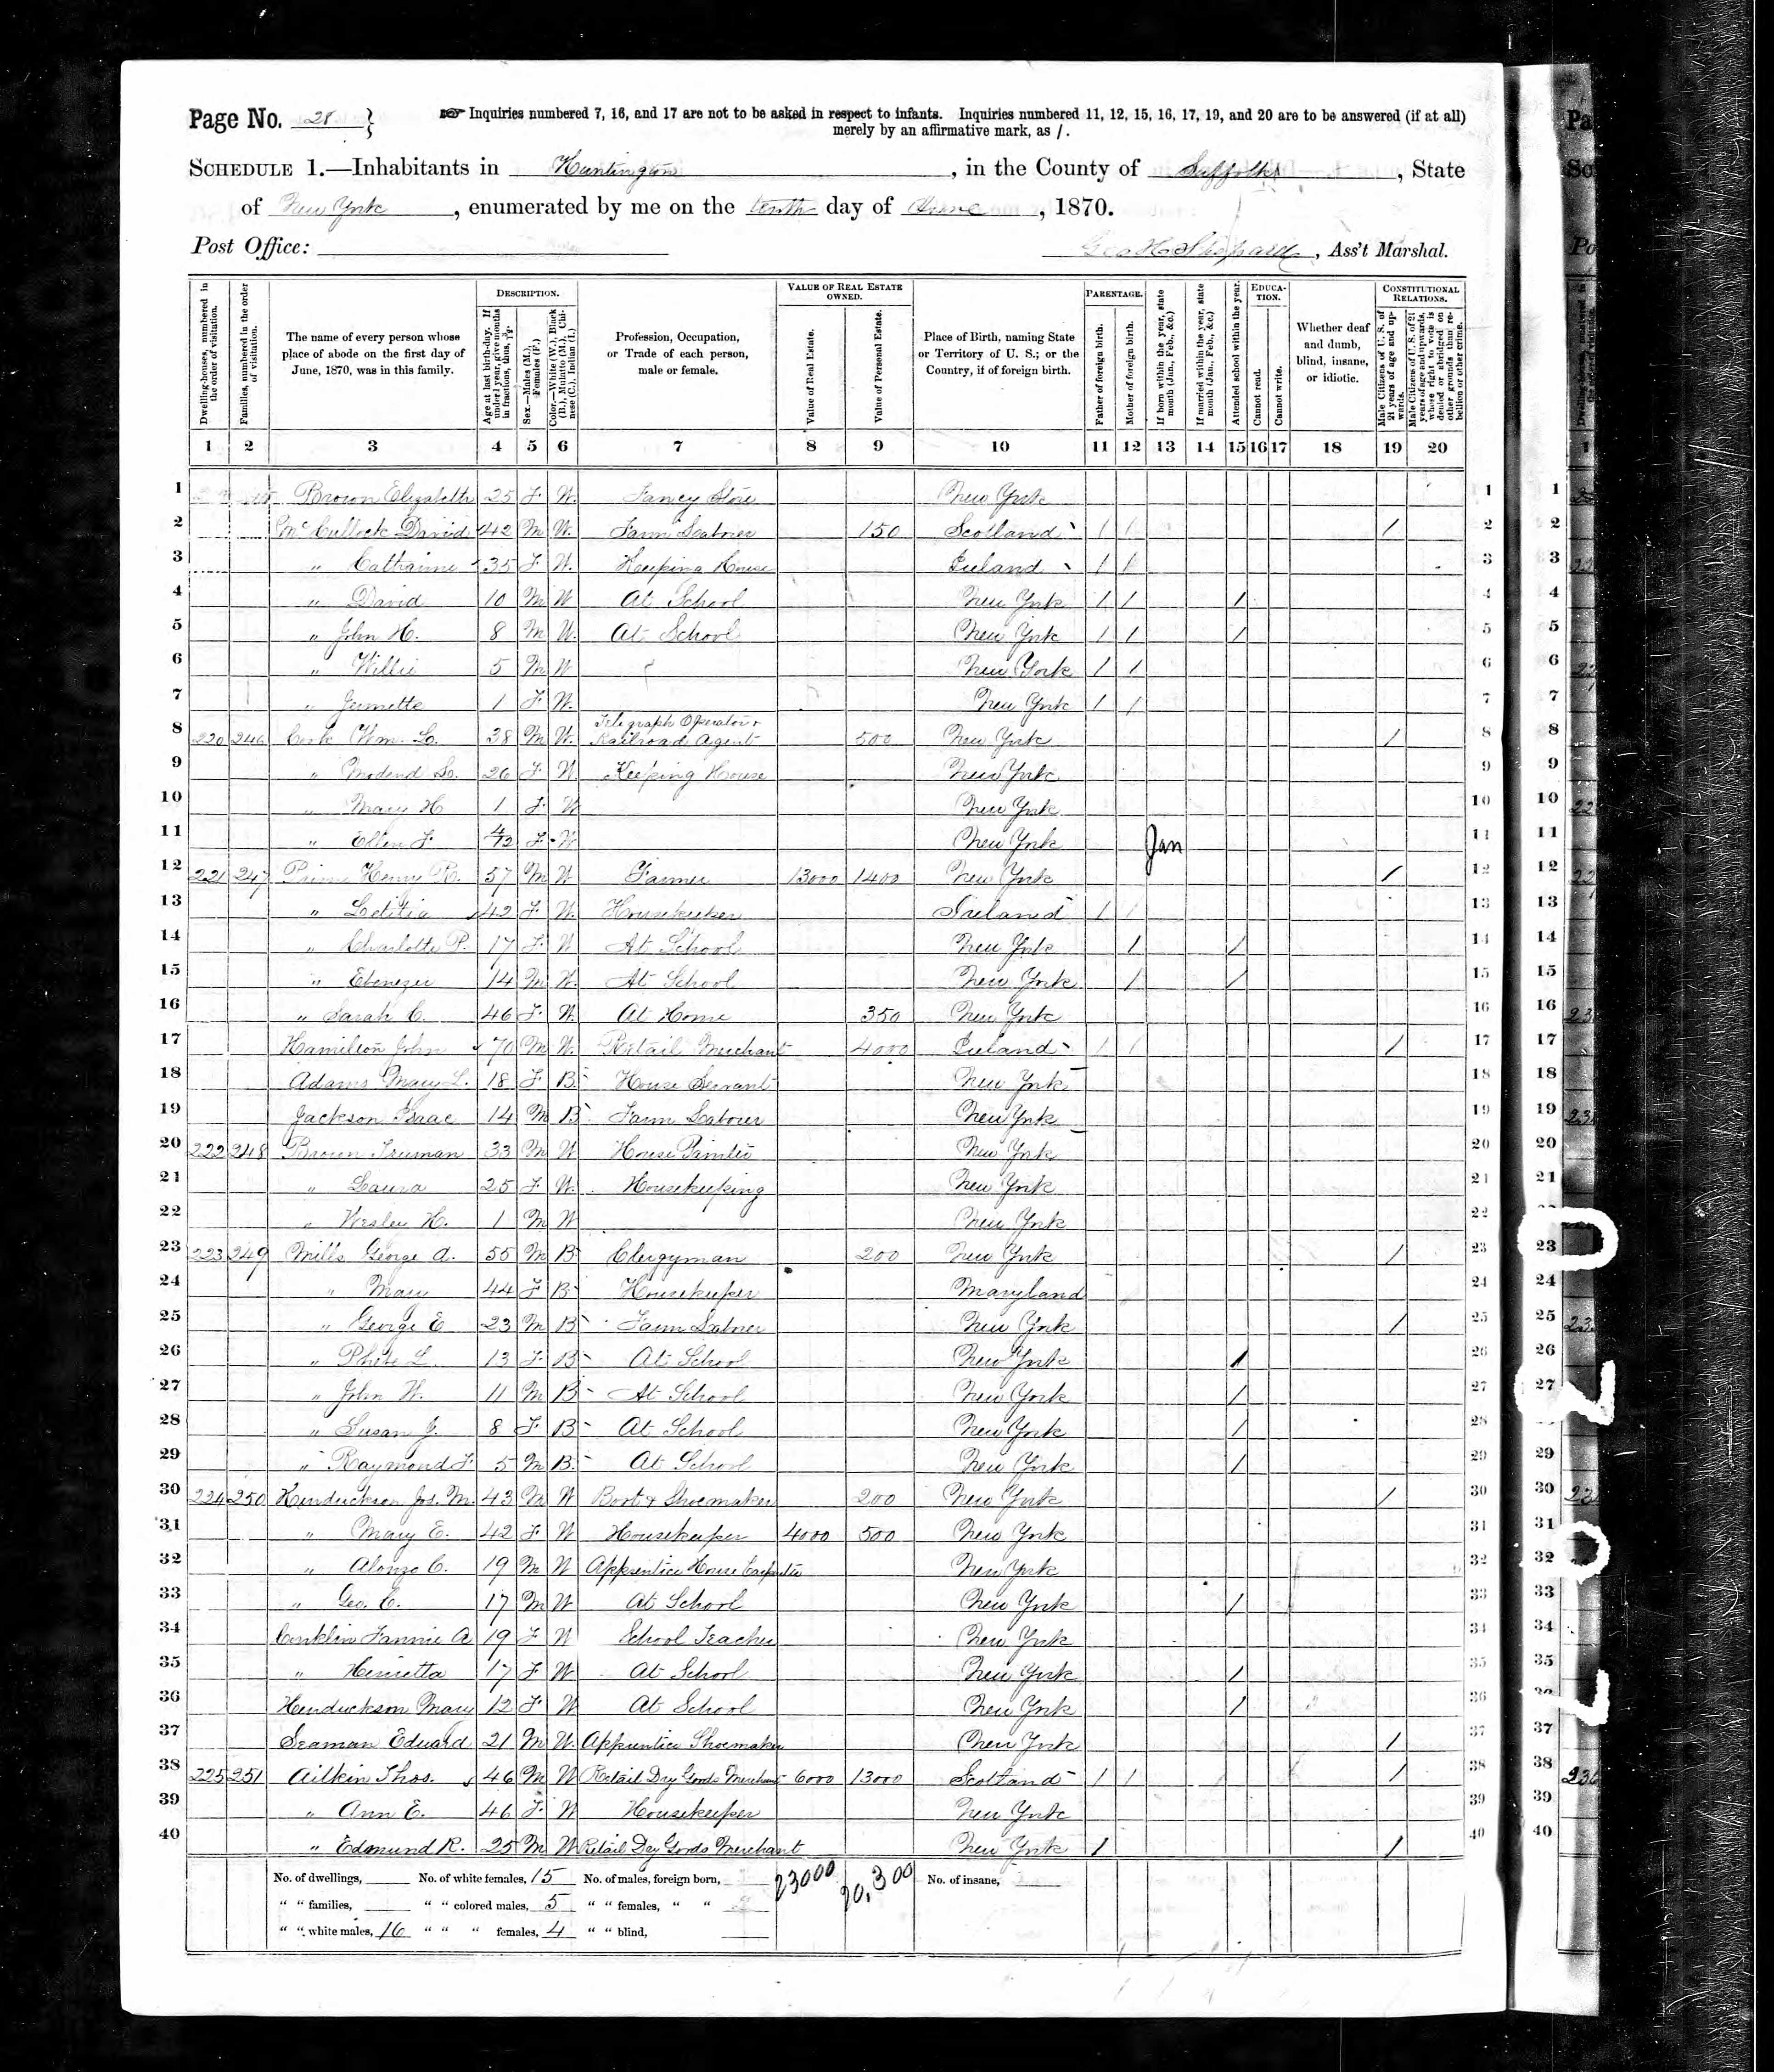 Page No. 28 }
☞ Inquiries numbered 7, 16, and 17 are not to be asked in respect to infants. Inquiries numbered 11, 12, 15, 16, 17, 19, and 20 are to be answered (if at all)
merely by an affirmative mark, as /.
SCHEDULE 1.—Inhabitants in Huntington, in the County of Suffolk, State
of New York, enumerated by me on the tenth day of June, 1870.
Post Office:
Geo H Shepard, Ass't Marshal.
DESCRIPTION. VALUE OF REAL ESTATE OWNED. PARENTAGE. EDUCATION. CONSTITUTIONAL RELATIONS.
Dwelling-houses, numbered in the order of visitation.
Families, numbered in the order of visitation.
The name of every person whose place of abode on the first day of June, 1870, was in this family.
Age at last birth-day. If under 1 year, give months in fractions, thus, 3/12.
Sex.—Males (M.), Females (F.)
Color.—White (W.), Black (B.), Mulatto (M.), Chinese (C.), Indian (I.)
Profession, Occupation, or Trade of each person, male or female.
Value of Real Estate.
Value of Personal Estate.
Place of Birth, naming State or Territory of U. S.; or the Country, if of foreign birth.
Father of foreign birth.
Mother of foreign birth.
If born within the year, state month (Jan., Feb., &c.)
If married within the year, state month (Jan., Feb., &c.)
Attended school within the year.
Cannot read.
Cannot write.
Whether deaf and dumb, blind, insane, or idiotic.
Male Citizens of U. S. of 21 years of age and upwards.
Male Citizens of U. S. of 21 years of age and upwards, whose right to vote is denied or abridged on other grounds than rebellion or other crime.
1 2 3 4 5 6 7 8 9 10 11 12 13 14 15 16 17 18 19 20
1 Brown Elizabeth 25 F W. Fancy Store New York 1
2 McCullock David 42 M W. Farm Laborer 150 Scotland / / / 2
3 " Catharine 35 F W. Keeping House Ireland / / 3
4 " David 10 M W At School New York / / / 4
5 " John H. 8 M W. At School New York / / / 5
6 " Willie 5 M W New York / / 6
7 " Jennette 1 F W. New York / / 7
8 220 246 Wm. L. 38 M W. Telegraph Operator + Railroad Agent 500 New York / 8
9 " 26 F W Keeping House New York 9
10 " Mary H 1 F W New York 10
11 " Ellen F. 4/12 F W New York Jan 11
12 221 247 Prime Henry R. 57 M W Farmer 13000 1400 New York / 12
13 " Letitia 42 F W. Housekeeper Ireland / / 13
14 " Charlotte P. 17 F W At School New York / / 14
15 " Ebenezer 14 M W. At School New York / / 15
16 " Sarah C. 46 F W. At Home 350 New York 16
17 Hamilton John 70 M W. Retail Merchant 4000 Ireland / / / 17
18 Adams Mary L. 18 F B House Servant New York 18
19 Jackson Isaac 14 M B Farm Laborer New York 19
20 222 248 Brown Truman 33 M W House Painter New York 20
21 " Laura 25 F W. Housekeeping New York 21
22 " Wesley H. 1 M W New York 22
23 223 249 Mills George A. 55 M B Clergyman 200 New York / 23
24 " Mary 44 F B Housekeeper Maryland 24
25 " George E 23 M B Farm Laborer New York / 25
26 " Phebe L. 13 F B At School New York / 26
27 " John W. 11 M B At School New York / 27
28 " Susan J. 8 F B At School New York / 28
29 " Raymond F. 5 M B. At School New York / 29
30 224 250 Hendrickson Jos. M. 43 M W Boot + Shoemaker 200 New York / 30
31 " Mary E. 42 F W Housekeeper 4000 500 New York 31
32 " Alonzo C. 19 M W Apprentice House Carpenter New York 32
33 " Geo. C. 17 M W At School New York / 33
34 Conklin Fannie A 19 F W School Teacher New York 34
35 " Henrietta 17 F W At School New York / 35
36 Hendrickson Mary 12 F W At School New York / 36
37 Seaman Edward 21 M W. Apprentice Shoemaker New York / 37
38 225 251 Aitkin Thos. 46 M W Retail Dry Goods Merchant 6000 13000 Scotland / / / 38
39 " Ann E. 46 F W Housekeeper New York 39
40 " Edmund R. 25 M W Retail Dry Goods Merchant New York / / 40
No. of dwellings, No. of white females, 15 No. of males, foreign born, 23000 20,300 No. of insane,
" " families, " " colored males, 5 " " females, " "
" " white males, 16 " " " females, 4 " " blind,